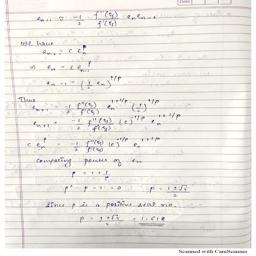 e_{n+1} ≈ -1/2 f''(ξ)/f'(ξ) e_n e_{n-1}
we have
e_n = c e_{n-1}^p
⇒ e_{n-1} = (1/c e_n)^{1/p}
Thus
e_{n+1} = -1/2 f''(ξ)/f'(ξ) e_n^{1+1/p} (1/c)^{1/p}
e_{n+1} = -1/2 f''(ξ)/f'(ξ) (c)^{-1/p} e_n^{1+1/p}
c e_n^p = -1/2 f''(ξ)/f'(ξ) (c)^{-1/p} e_n^{1+1/p}
comparing powers of e_n
p = 1 + 1/p
p² - p - 1 = 0 p =
Since p is a positive real no.
p = = 1.618
Scanned with CamScanner